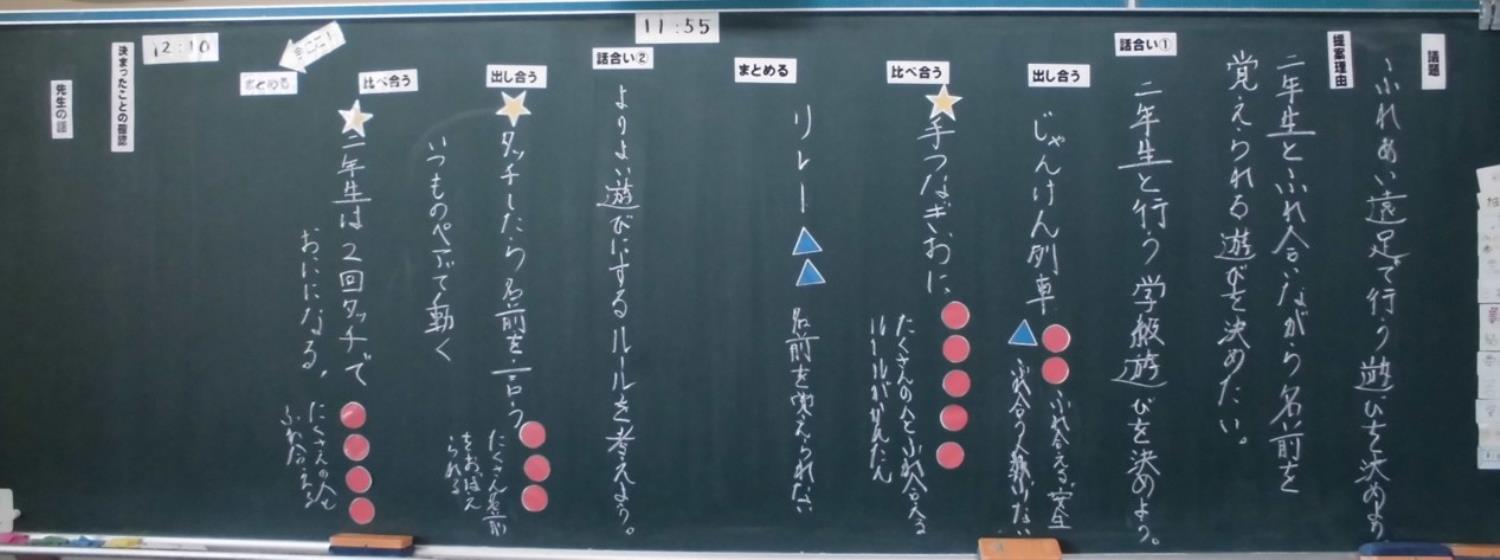 議題
ふれあい遠足で行う遊びを決めよう
提案理由
二年生とふれ合いながら名前を
覚えられる遊びを決めたい。
話合い①
二年生と行う学級遊びを決めよう。
出し合う
じゃんけん列車
ふれ合える 安全
ふれ合う人数が少ない
比べ合う
手つなぎおに
たくさんの人とふれ合える
ルールがかんたん
まとめる
リレー
名前を覚えられない
11:55
話合い②
よりよい遊びにするルールを考えよう。
出し合う
タッチしたら名前を言う
たくさん名前
をおぼえ
られる
いつものペアで動く
比べ合う
二年生は2回タッチで
おにになる。
たくさんの人と
ふれ合える
まとめる
今ここ!
12:10
決まったことの確認
先生の話